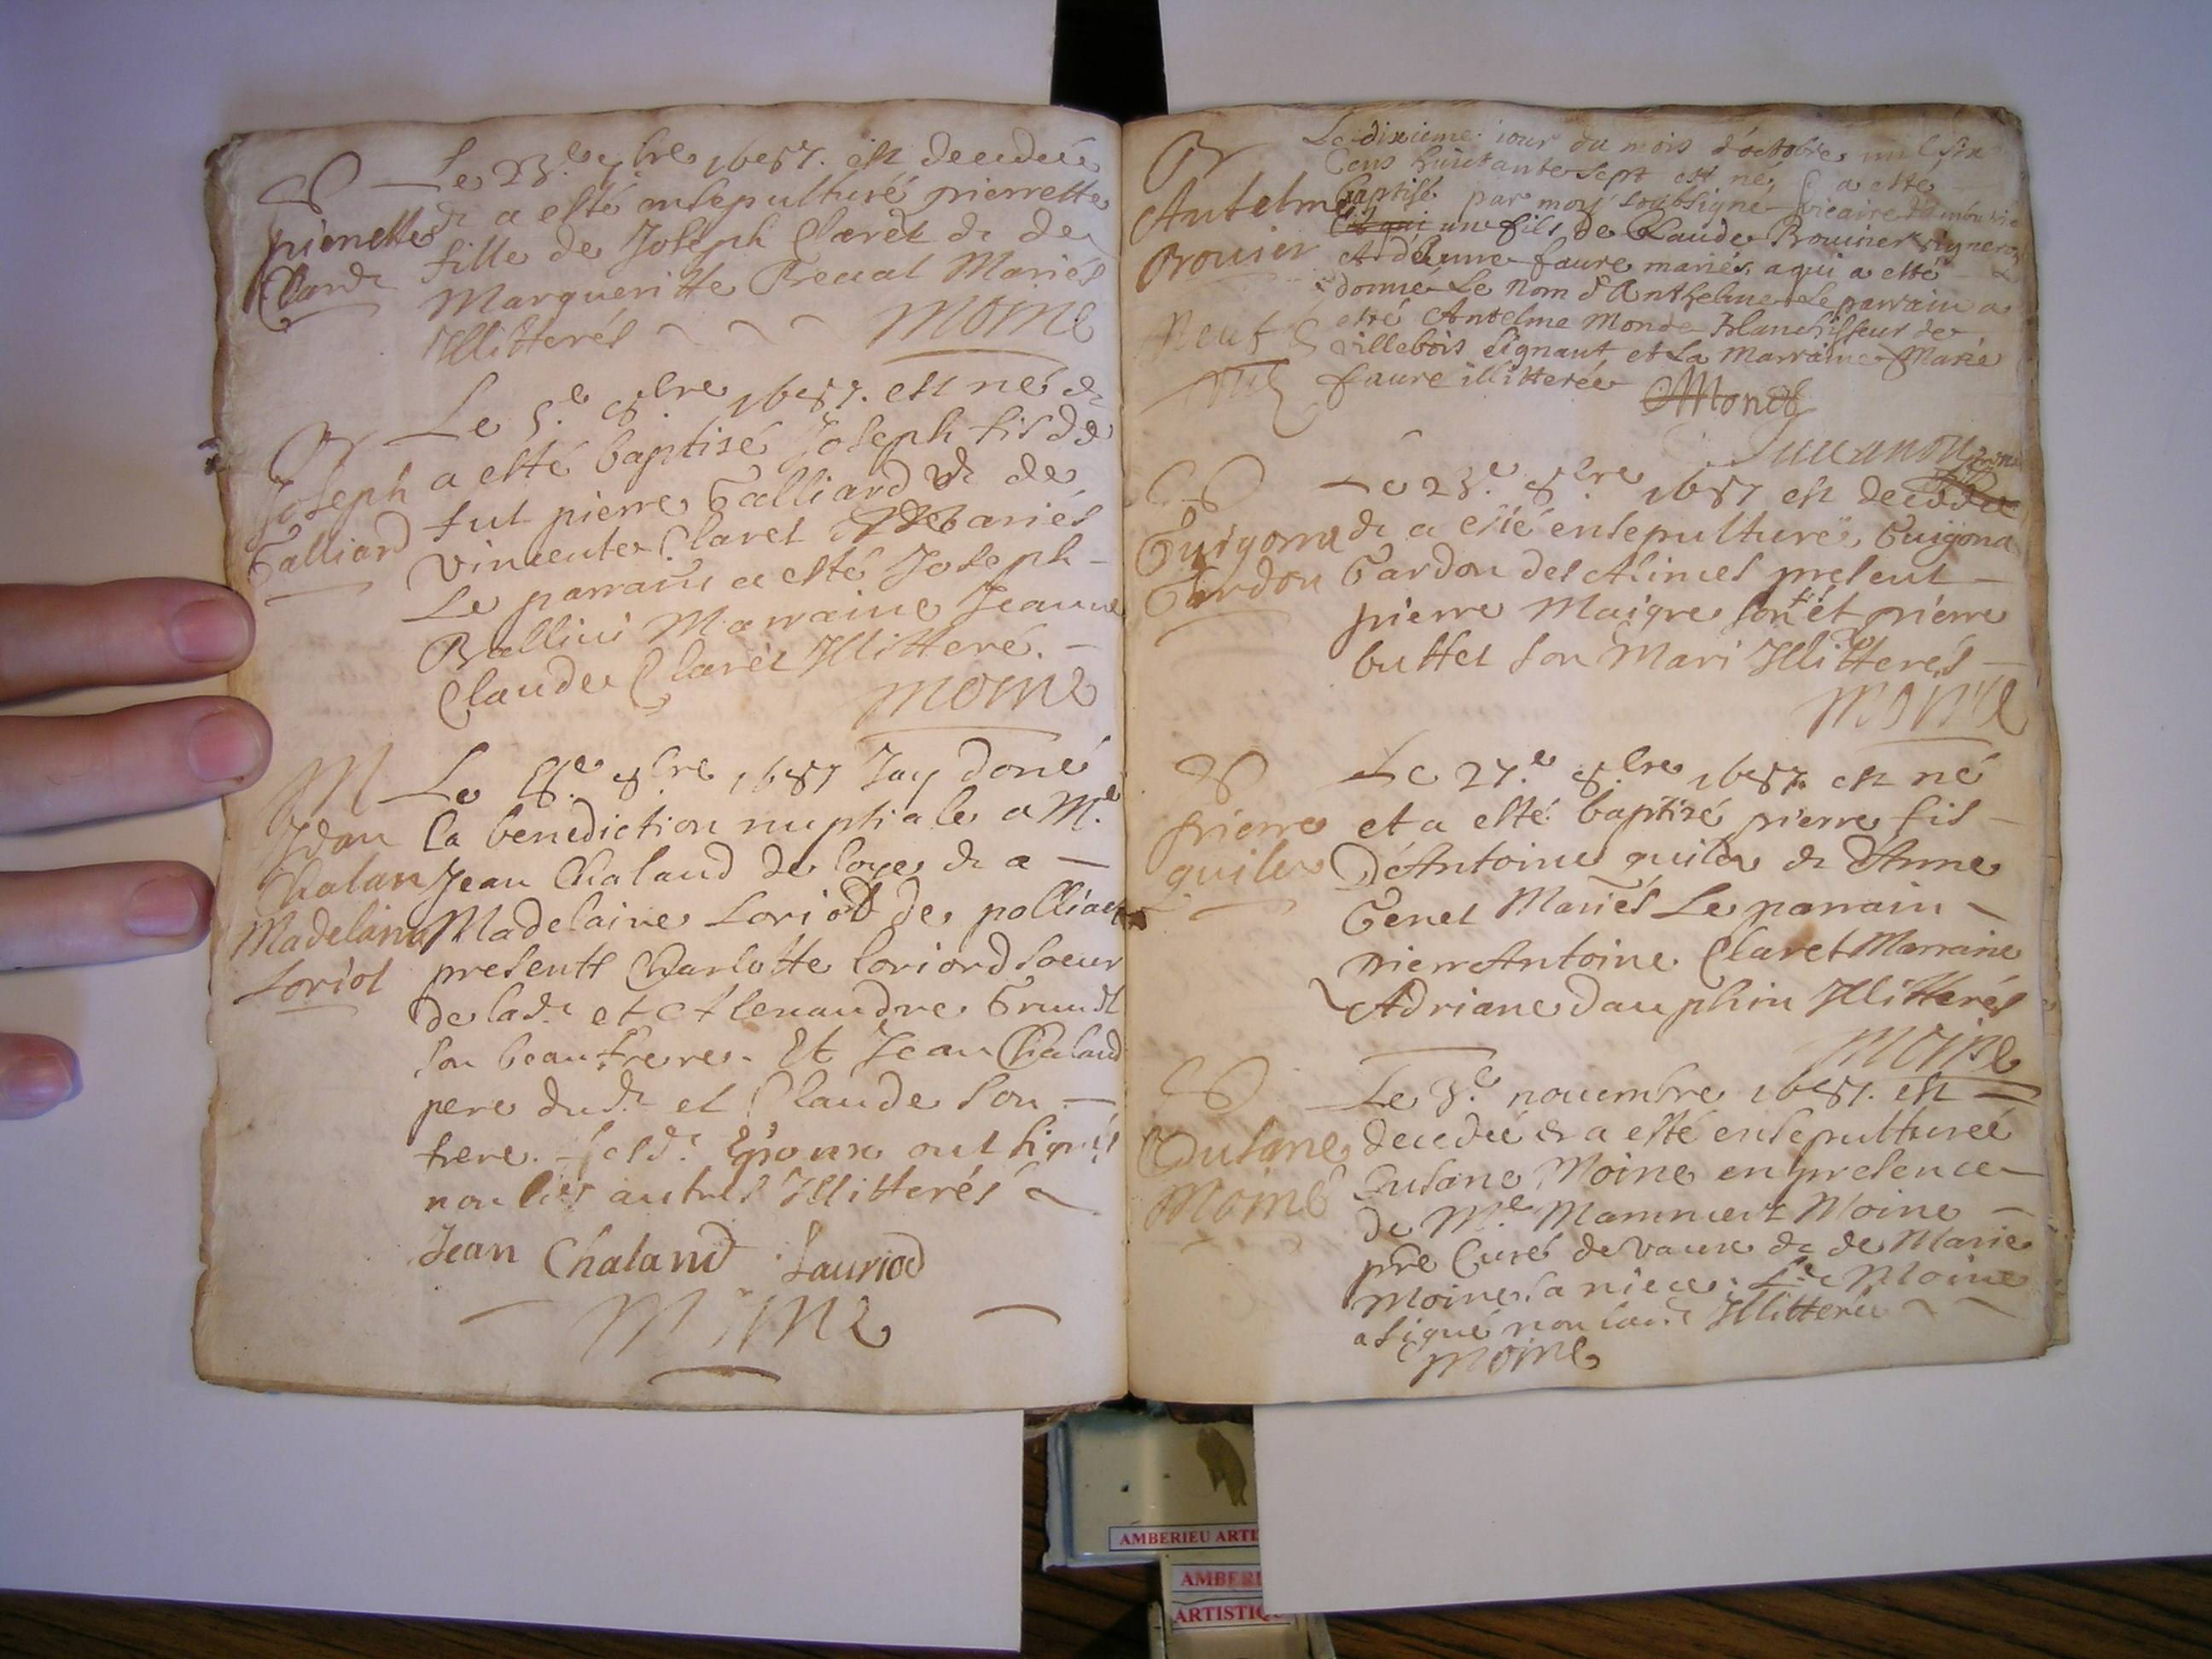 Le 23.e 7bre 1687. est decedée
& a esté ensepulturé pierrette
fille de Joseph Claret & de
Margueritte Breual Mariés
Illitterés
Moine
pierrette
Claret
Le 5.e 8bre 1687. est né &
a esté baptisé Joseph fis de
fut pierre Galliard & de
Vincente Claret Mariés
Le parrain a esté Joseph
Ballini Marraine Jeanne
Claude Claret Illitteré.
Moine
Joseph
Galliard
Le 8.e 8bre 1687 Jay doné
la benediction nuptiale a M.e
Jean Chaland de loye & a
Madelaine Loriod de polliaet
presentt Charlotte loriord soeur
de lad.e et Alexandre
son beaufrere. Et Jean Chaland
pere dud.t et Claude son
frere. lesd. Epoux ont signés
non les autres Illitterés
Jean Chaland Lauriod
Moine
M
Jean
Chalan
Madelaine
Loriol
Le dixieme iour du mois d'octobre mil six
cens huictante sept est né & a esté
baptisé par moy soubsigné vicaire
un fils de Claude Brouiner vigneron
et d'Anne faure mariés, a qui a esté
donné Le nom d'Anthelme Le parrain a
esté Antelme Monde Blanchisseur de
villebois signant et La Marraine Marie
faure illitterée
AMonde
Antelme
Brouier
Le 23.e 8bre 1687 est decedée
& a esté ensepulturé, Guigona
Gardon des Alimes present
pierre Maigre son f. et pierre
buttet son Mari Illitterés
Moine
Guigona
Gardon
Le 27.e 8bre 1687. est né
et a esté baptizé pierre fis
D'Antoine quiler & d'Anne
Genet Mariés Le parrain
pierrAntoine Claret Marraine
Adriane dauphin Illitterés
Moine
pierre
quiler
Le 3.e nouembre 1687. est
decedeé & a esté ensepultureé
Susane Moine en presence
de M.e Mammert Moine
pre Curé de vaux & de Marie
Moine sa niece; L.e Moine
a signé non lad.e Illitterée
Moine
Susane
Moine
AMBERIEU ARTI
AMBERI
ARTISTIQU